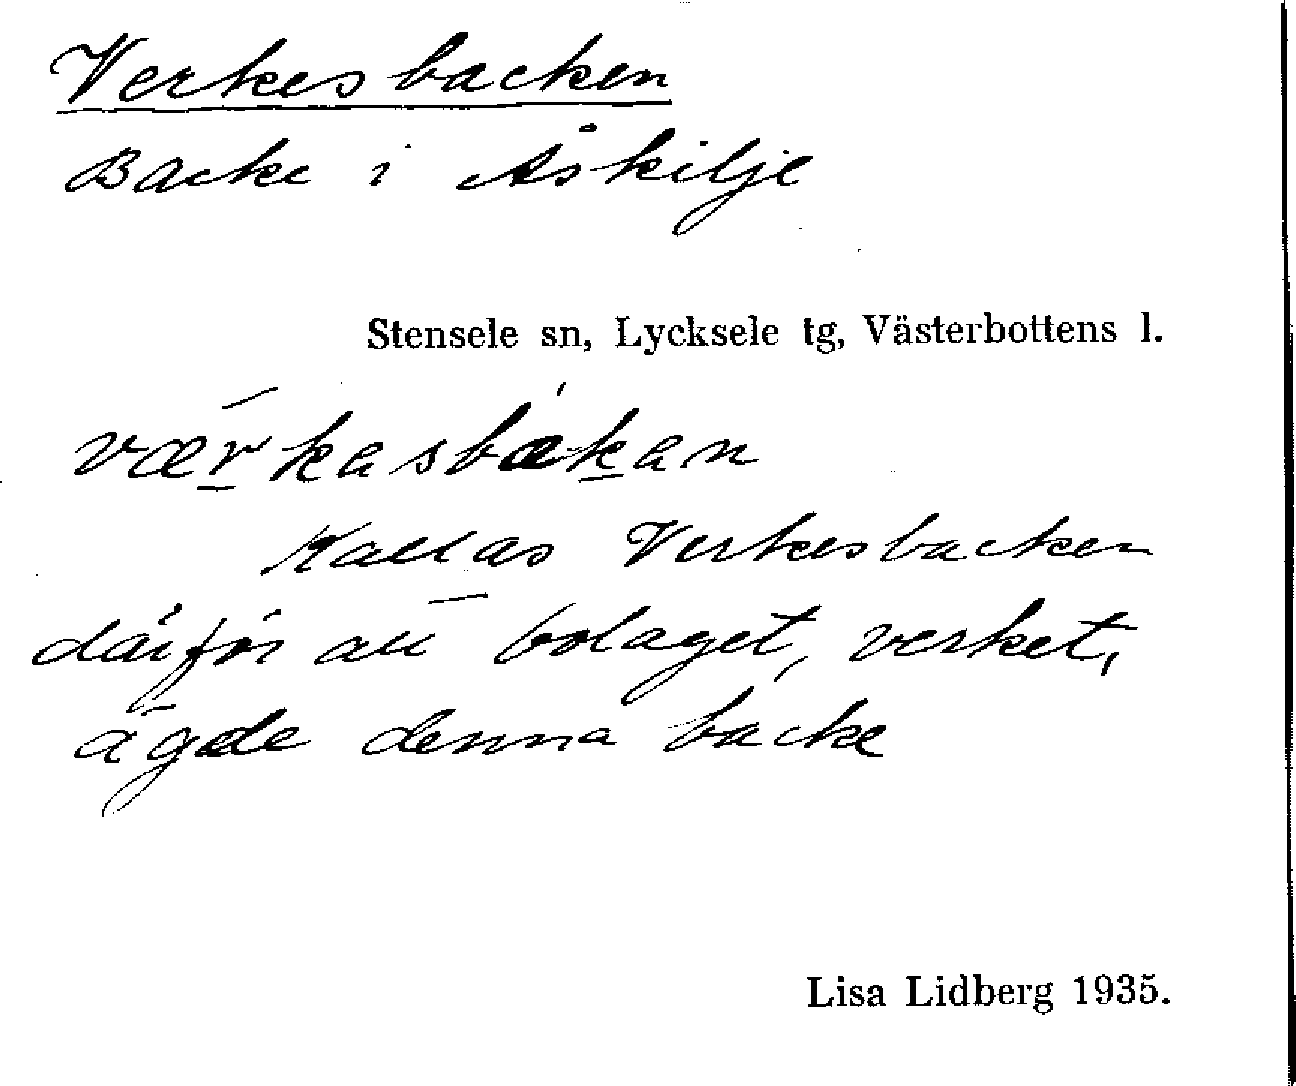 Verkesbacken
Backe i Åskilje
Stensele sn, Lycksele tg, Västerbottens l.
værkasbakan
Kallas Verkesbacken
därför att bolaget, verket,
ägde denna backe
Lisa Lidberg 1935.